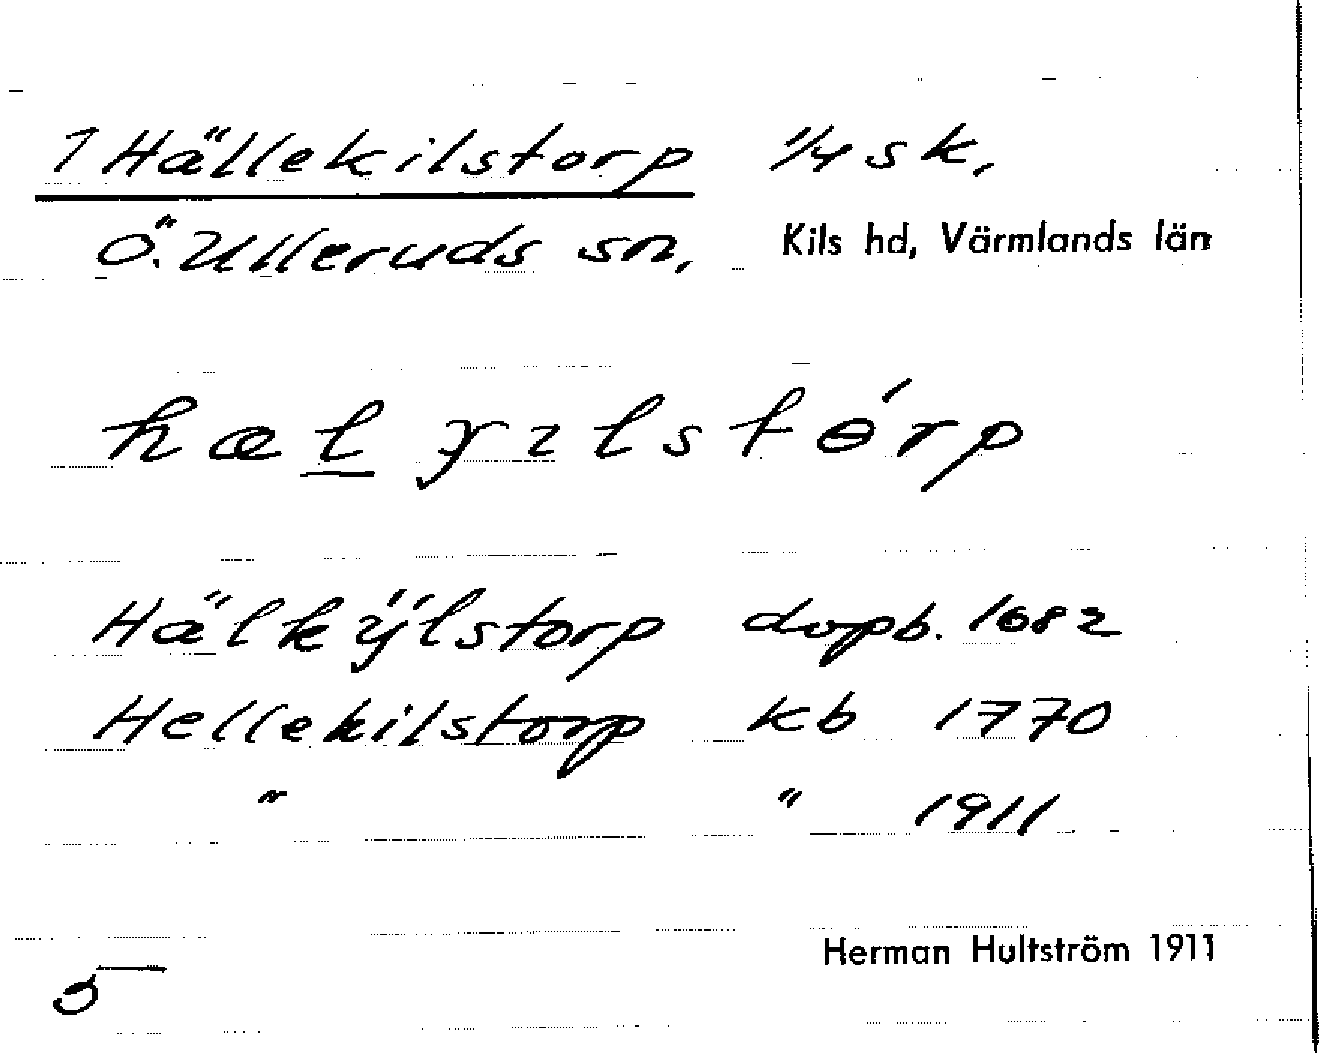 1 Hällekilstorp 1/4 sk,
Ö. Ulleruds sn, Kils hd, Värmlands län
Hälkÿlstorp dopb. 1682
Hellekilstorp kb 1770
" " 1911
Herman Hultström 1911
5